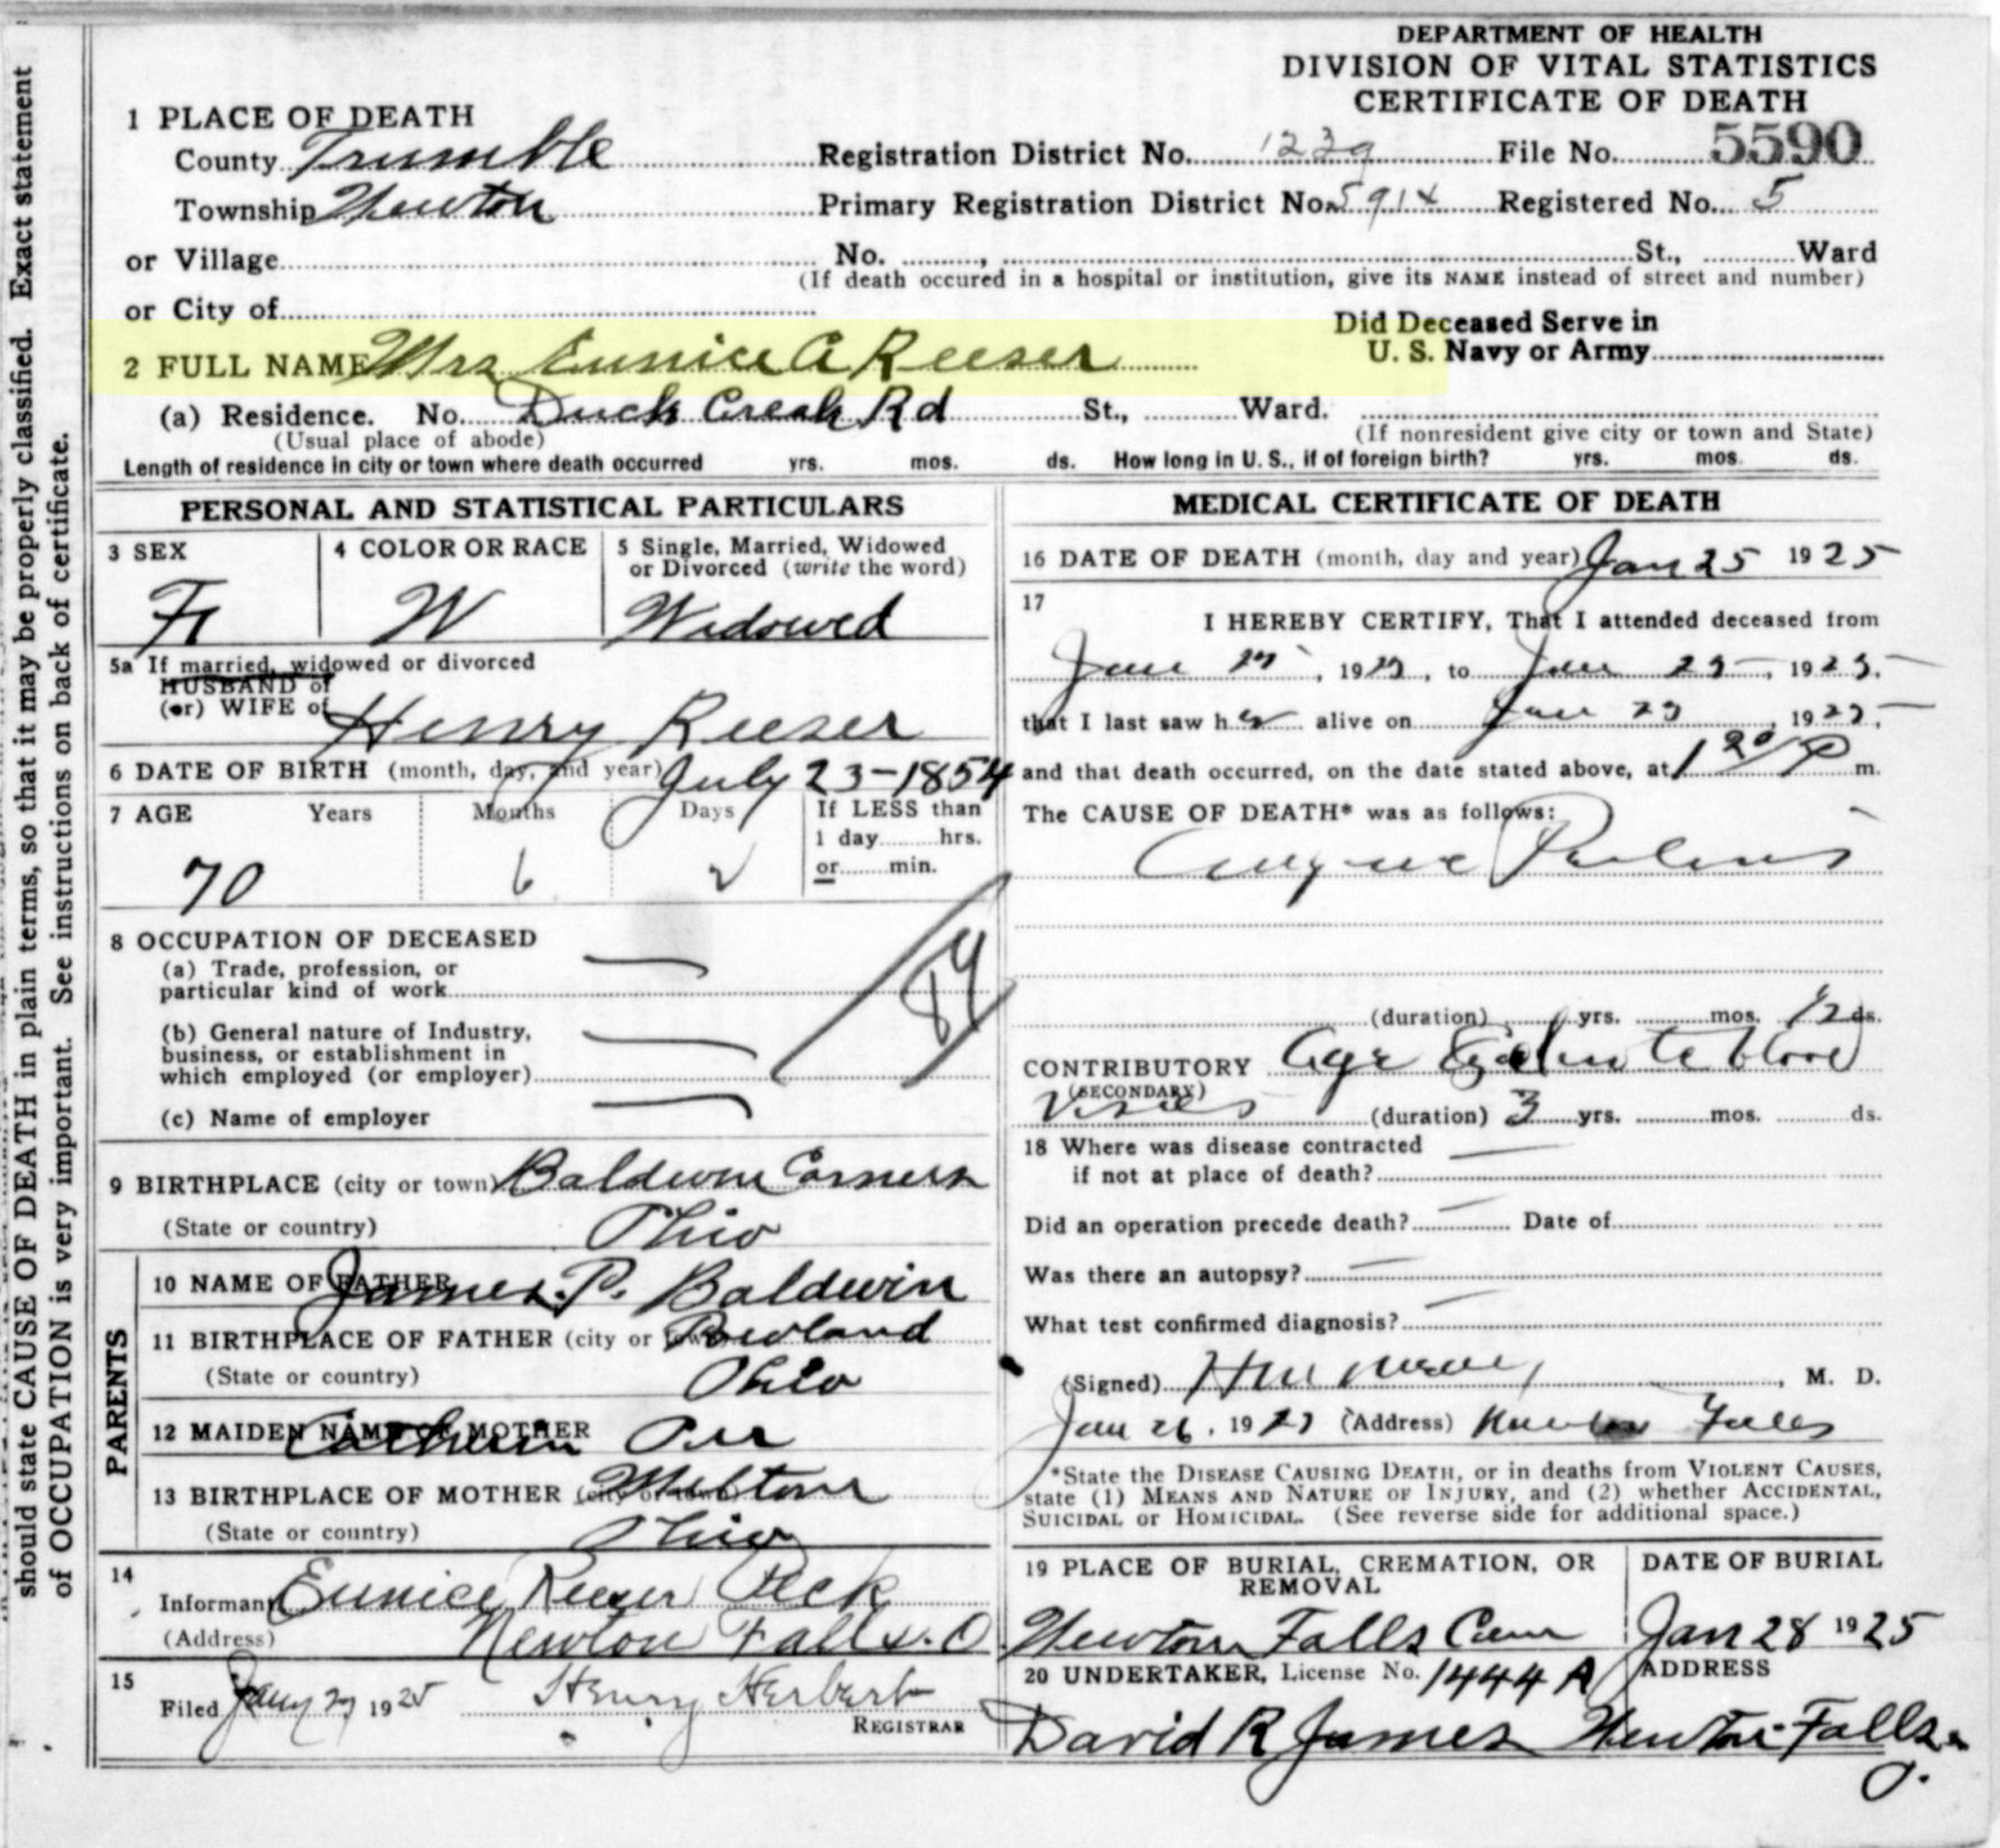 should state CAUSE OF DEATH in plain terms, so that it may be properly classified. Exact statement
of OCCUPATION is very important. See instructions on back of certificate.
DEPARTMENT OF HEALTH
DIVISION OF VITAL STATISTICS
CERTIFICATE OF DEATH
1 PLACE OF DEATH
County Trumble Registration District No. 1239 File No. 5590
Township Newton Primary Registration District No. 5914 Registered No. 5
or Village No. , St., Ward
(If death occured in a hospital or institution, give its NAME instead of street and number)
or City of
Did Deceased Serve in
U. S. Navy or Army
2 FULL NAME Mrs Eunice A Reeser
(a) Residence. No. Duck Creek Rd St., Ward.
(Usual place of abode) (If nonresident give city or town and State)
Length of residence in city or town where death occurred yrs. mos. ds. How long in U. S., if of foreign birth? yrs. mos. ds.
PERSONAL AND STATISTICAL PARTICULARS
3 SEX
F
4 COLOR OR RACE
W
5 Single, Married, Widowed
or Divorced (write the word)
Widowed
5a If married, widowed or divorced
HUSBAND of
(or) WIFE of Henry Reeser
6 DATE OF BIRTH (month, day, and year) July 23-1854
7 AGE Years Months Days If LESS than
1 day hrs.
or min.
70 6 2
8 OCCUPATION OF DECEASED
(a) Trade, profession, or
particular kind of work
(b) General nature of Industry,
business, or establishment in
which employed (or employer)
(c) Name of employer
84
9 BIRTHPLACE (city or town) Baldwin Corners
(State or country) Ohio
PARENTS
10 NAME OF FATHER James P. Baldwin
11 BIRTHPLACE OF FATHER (city or town)
(State or country) Ohio
12 MAIDEN NAME OF MOTHER Catherin
13 BIRTHPLACE OF MOTHER (city or town) Milton
(State or country) Ohio
14
Informant Eunice Reeser Peck
(Address) Newton Falls. O
15
Filed Jany 27 1925 Henry Herbert
REGISTRAR
MEDICAL CERTIFICATE OF DEATH
16 DATE OF DEATH (month, day and year) Jan 25 1925
17
I HEREBY CERTIFY, That I attended deceased from
, 19 , to Jan 25, 1925,
that I last saw her alive on Jan , 19
and that death occurred, on the date stated above, at 1 P m.
The CAUSE OF DEATH* was as follows:
(duration) yrs. mos. 1/2 ds.
CONTRIBUTORY Age blood
(SECONDARY)
(duration) 3 yrs. mos. ds.
18 Where was disease contracted
if not at place of death?
Did an operation precede death? Date of
Was there an autopsy?
What test confirmed diagnosis?
(Signed) , M. D.
Jan 26, 19 (Address) Newton Falls
*State the DISEASE CAUSING DEATH, or in deaths from VIOLENT CAUSES,
state (1) MEANS AND NATURE OF INJURY, and (2) whether ACCIDENTAL,
SUICIDAL or HOMICIDAL. (See reverse side for additional space.)
19 PLACE OF BURIAL, CREMATION, OR
REMOVAL
Newton Falls Cem
DATE OF BURIAL
Jan 28 1925
20 UNDERTAKER, License No. 1444 A
David R James
ADDRESS
Newton Falls
O.